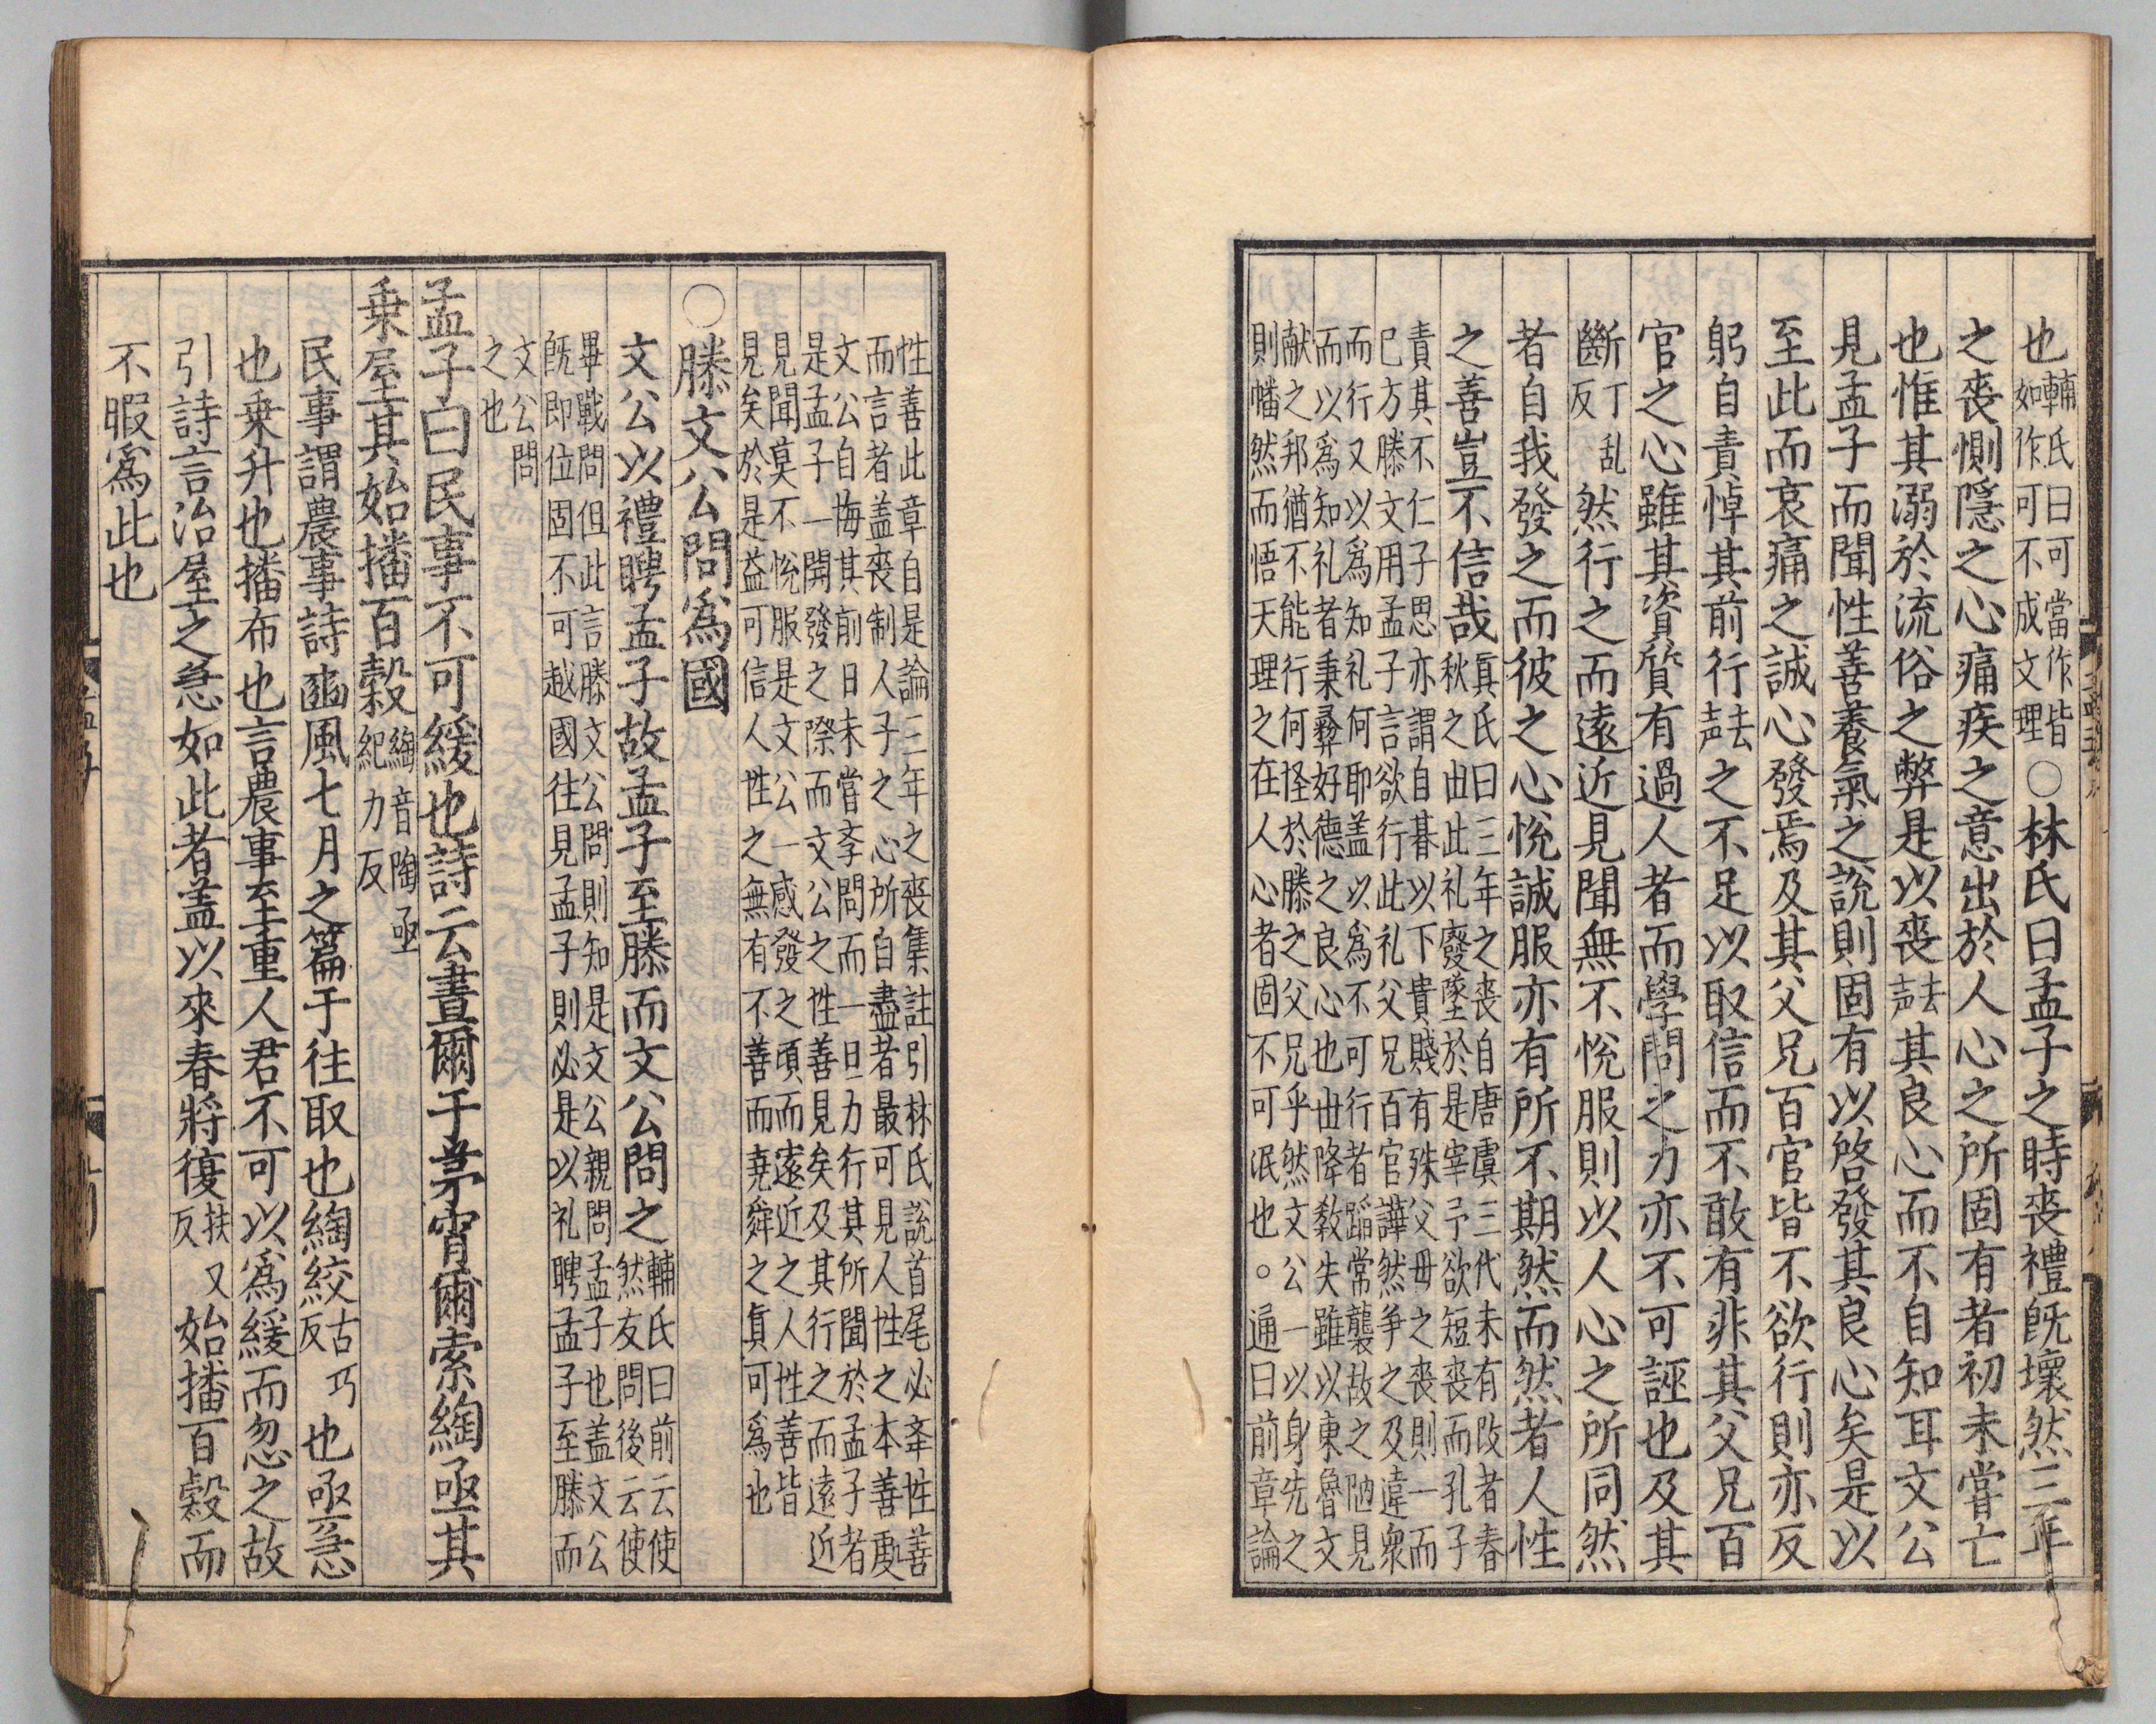 也輔氏曰可當作皆
如作可不成文理○林氏曰孟子之時喪禮既壞然三年
之喪惻隱之心痛疾之意出於人心之所固有者初未嘗亡
也惟其溺於流俗之弊是以喪去声其良心而不自知耳文公
見孟子而聞性善養氣之說則固有以啓發其良心矣是以
至此而哀痛之誠心發焉及其父兄百官皆不欲行則亦反
躬自責悼其前行去声之不足以取信而不敢有非其父兄百
官之心雖其資質有過人者而學問之力亦不可誣也及其
斷丁乱反然行之而遠近見聞無不悅服則以人心之所同然
者自我發之而彼之心悅誠服亦有所不期然而然者人性
之善豈不信哉真氏曰三年之喪自唐虞三代未有改者春
秋之世此礼廢墜於是宰予欲短喪而孔子
責其不仁子思亦謂自朞以下貴賤有殊父毋之喪則一而
已方滕文用孟子言欲行此礼父兄百官譁然争之及違衆
而行又以爲知礼何耶盖以爲不可行者蹈常襲故之陋見
而以爲知礼者秉彝好德之良心也世降教失雖以東魯文
献之邦猶不能行何怪於滕之父兄乎然文公一以身先之
則幡然而悟天理之在人心者固不可泯也。通曰前章論
性善此章自是論三年之喪集註引林氏說首尾必夲性善
而言者盖喪制人子之心所自盡者最可見人性之本善䖏
文公自悔其前日未嘗斈問而一旦力行其所聞於孟子者
是孟子一開發之際而文公之性善見矣及其行之而遠近
見聞莫不悅服是文公一感發之頃而遠近之人性善皆
見矣於是益可信人性之無有不善而堯舜之真可爲也
○滕文公問爲國
文公以禮聘孟子故孟子至滕而文公問之輔氏曰前云使
然友問後云使
畢戰問但此言滕文公問則知是文公親問孟子也盖文公
既即位固不可越國往見孟子則必是以礼聘孟子至滕而
文公問
之也
孟子曰民事不可緩也詩云晝爾于茅宵爾索綯亟其
乗屋其始播百穀綯音陶亟
紀力反
民事謂農事詩豳風七月之篇于往取也綯絞古巧反也亟急
也乗升也播布也言農事至重人君不可以爲緩而忽之故
引詩言治屋之急如此者盖以來春將復扶又反始播百穀而
不暇爲此也